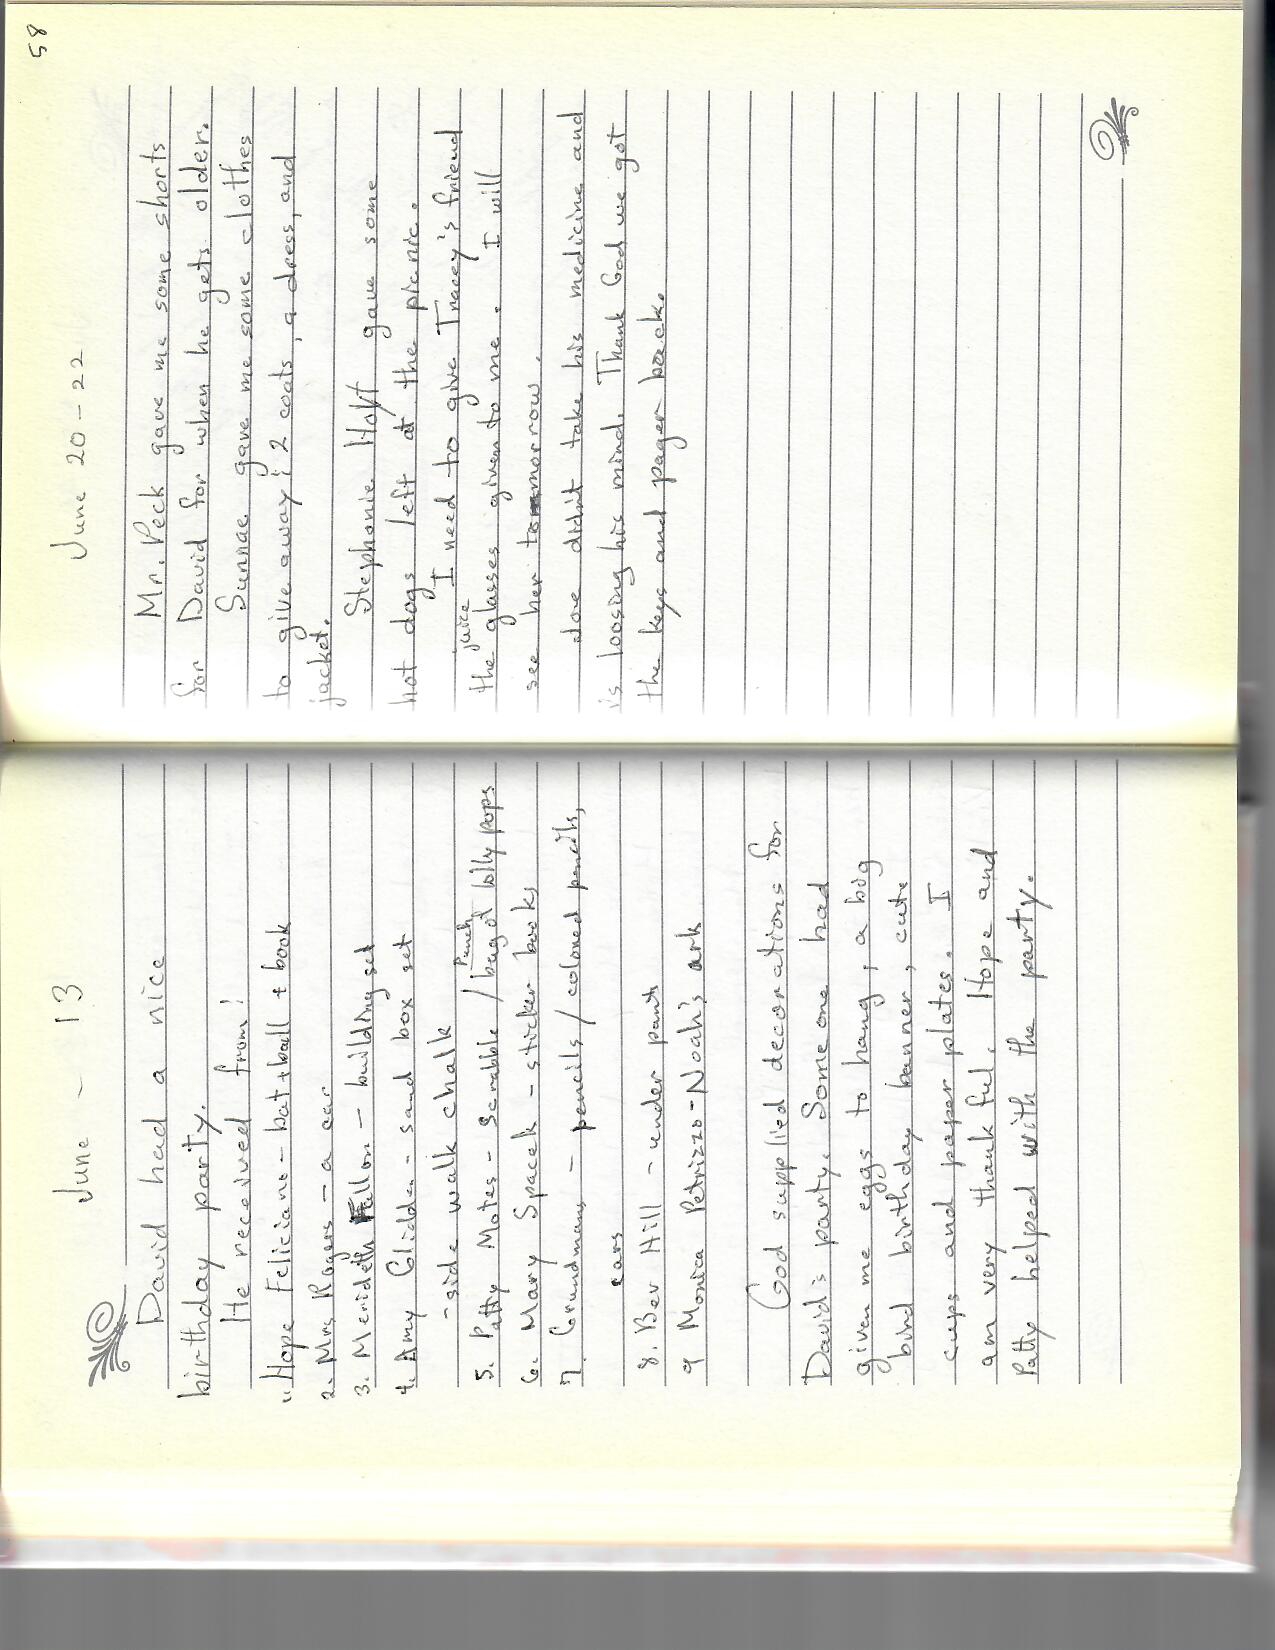 June - 13
David had a nice
birthday party.
He received from:
1. Hope Feliciano - bat + ball + book
2. Mrs Rogers - a car
3. Merideth Fallon - building set
4. Amy Glidden - sand box set
- side walk chalk
5. Patty Motes - Scrabble / Punch bag of lolly pops
6. Mary Spacek - sticker book,
7. Grundmans - pencils / colored pencils,
cars
8. Bev Hill - under pants
9 Monica Petrizzo - Noah's ark
God supplied decorations for
David's party. Someone had
given me eggs to hang, a big
bird birthday banner, cute
cups and paper plates. I
am very thankful. Hope and
Patty helped with the party.
58
June 20-22
Mr. Peck gave me some shorts
for David for when he gets older.
Sunnae gave me some clothes
to give away; 2 coats, a dress, and
jacket.
Stephanie Hoyt gave some
hot dogs left at the picnic.
I need to give Tracey's friend
the juice glasses given to me. I will
see her tommorrow.
Joe didn't take his medicine and
is loosing his mind. Thank God we got
the keys and pager back.